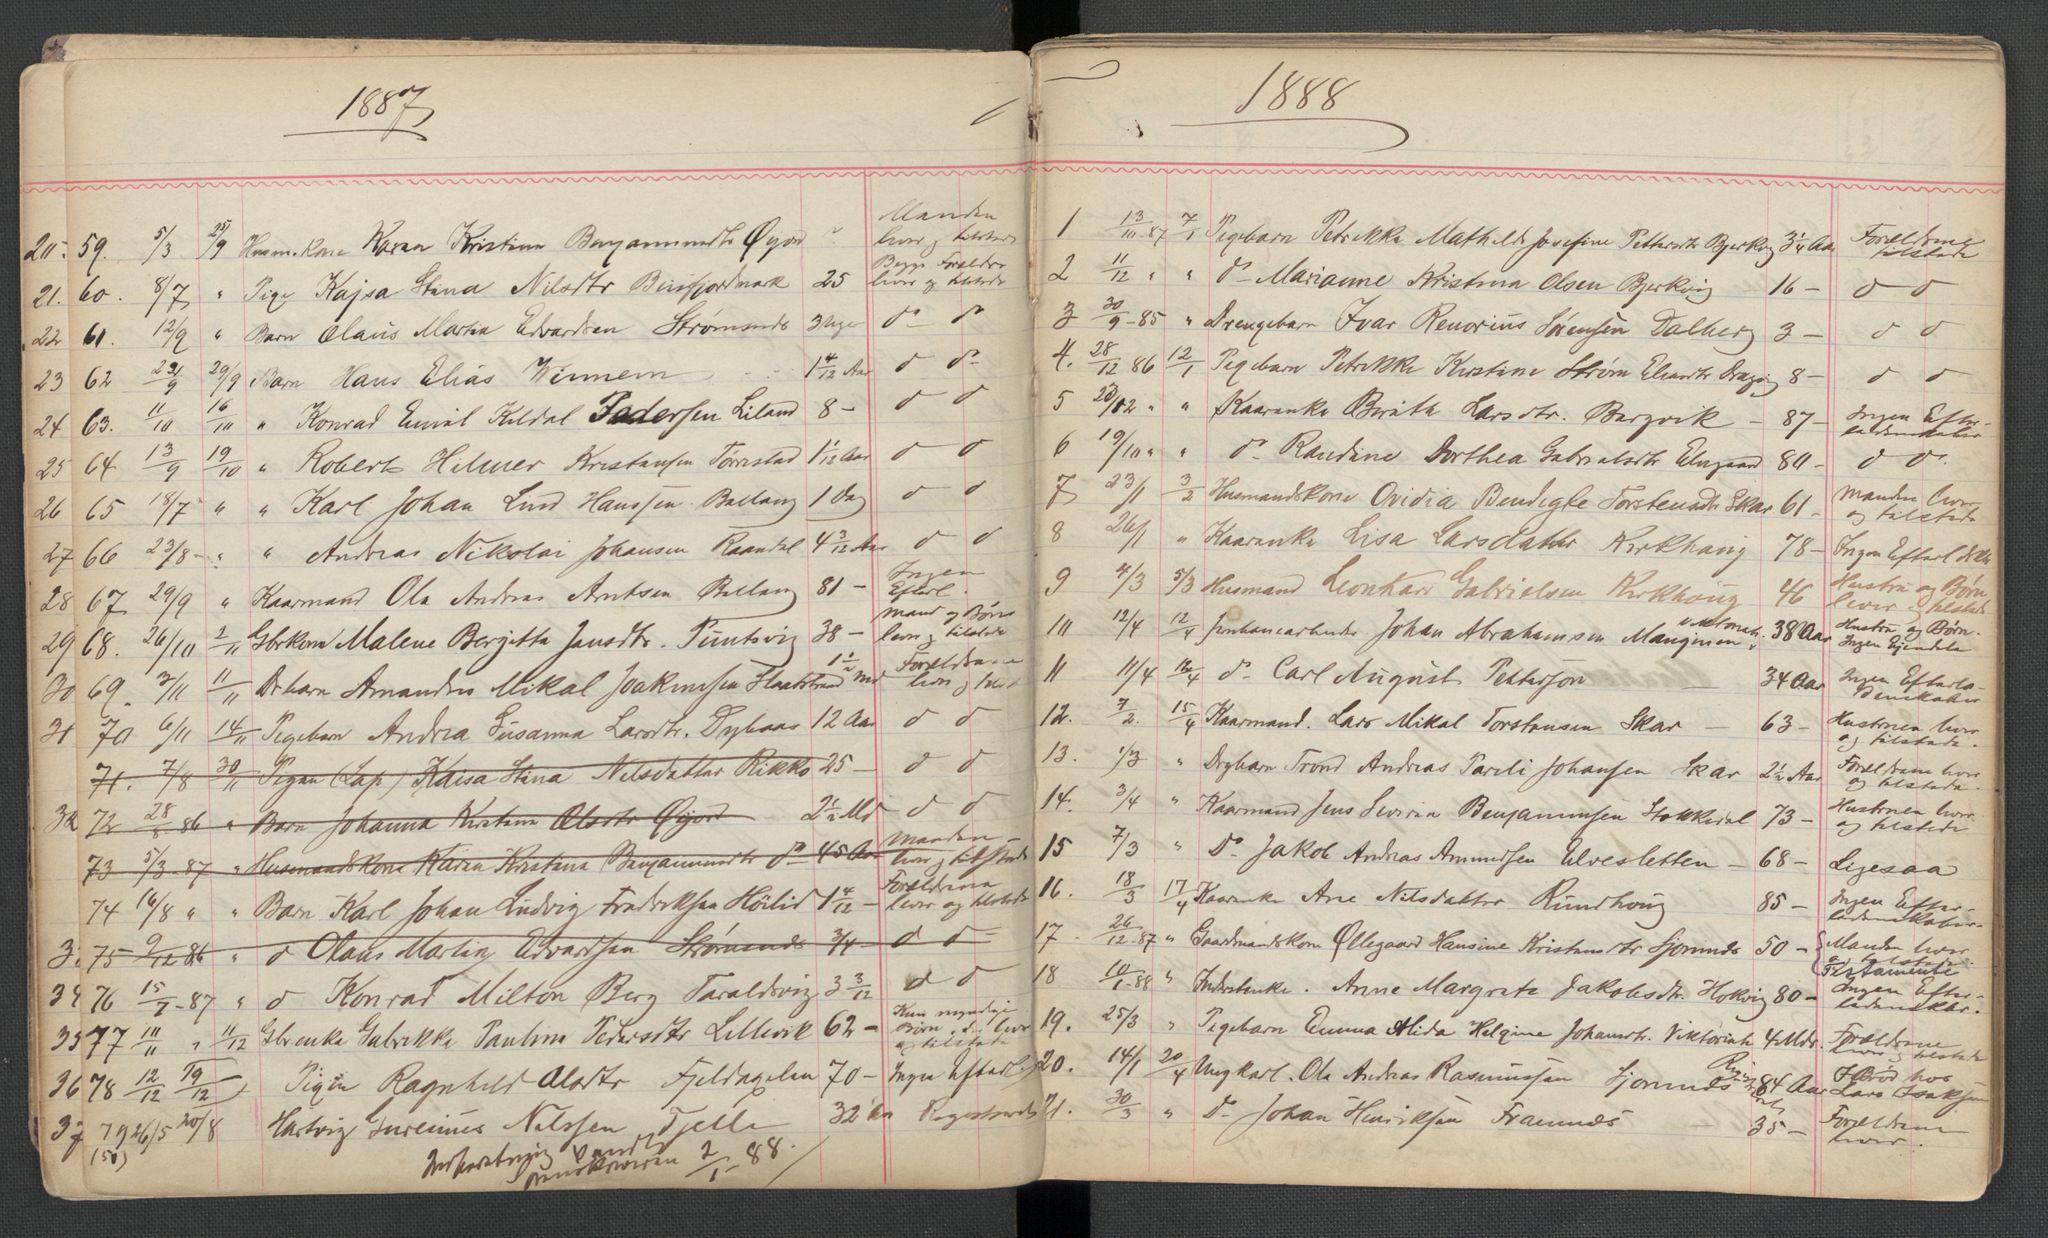 1887
20. 59. 5/3 25/9 Husm.kone Karen Kristina Benjaminsdtr Øijord " Manden lever og tilstede
21. 60. 8/7 " Pige Kajsa Stina Nilsdtr 25 Begge Forældre lever og tilstede
22 61. 12/9 " Barn Olaus Martin Edvardsen Strømsnes 3 Uger do do
23 62 23/9 29/9 Barn Hans Elias Winnem 1 4/12 Aar d do
24 63. 11/10 16/10 " Konrad Emil Kildal Pedersen Liland 8 - d d
25 64 13/9 19/10 " Robert Hilmer Kristensen Tørrestad 1 1/12 Aar d d
26 65 18/7 " " Karl Johan Lind Hanssen Ballang 1 Dag d d
27 66 23/8 - " " Andreas Nikolai Johansen Raandal 4 3/12 Aar d d
28 67 29/9 " Kaarmand Ola Andreas Arntsen Ballang 81 - Ingen Efterl.
29 68. 26/10 2/11 Gbrkone Malene Bergitta Jensdtr. 38 - Mand og Børn lever og tilstede
30 69. 3/11 11/11 Drbarn Amandus Mikal Joakimsen Slaatstrand 1 1/2 Md Forældrene lever og tilst
31 70 6/11 14/11 Pigebarn Andrea Susanna Larsdtr. Dybaas 12 Aar d d
71. 7/8 30/11 Pigen (Lap) Kaisa Stina Nilsdatter Rikko 25 - d d
32 72 28/8 86 " Barn Johanna Kristina Olsdtr Øijord 2 1/2 Md d d
73 5/3 - 87 " Husmandskone Karen Kristina Benjaminsdtr do 45 Aar Manden lever og tilstede
74 16/8 " " Barn Karl Johan Ludvig Fredriksen Høilid 1 4/12 - Forældrene lever og tilstede
3. 75 - 9/12 86 " d Olaus Martin Edvardsen Strømsnes 3/4 - d d -
34 76 15/7 - 87 " d Konrad Milton Berg Taraldsvig 3 3/12 d d
35 77 10/11 " 11/12 Gbrenke Gulrikka Paulina Pedersdtr Lillevik 62 - Kun myndige Børn, der lever og tilstede
36 78 12/12 19/12 Pigen Ragnhild Olsdtr Fjeldagelen 70 - Ingen Efterl.
37 79 26/5 20/8 Hartvig Nilssen Tjelle 32 Aar
(50) 2/1 - 88.
1888
1 13/11 87 7/1 Pigebarn Petrikke Mathilde Josefine Pettersdtr Bjerkvig 3 1/4 Aar Forældrene tilstede
2 11/12 " " do Marianne Kristina Olsen Bjerkvig 16 - d d
3 30/9 - 85 " Drengebarn Ivar Renorius Sørensen Dalberg 3 - d d
4. 28/12 86 12/1 Pigebarn Petrikke Kirstine Strøm 8 - d d
5 23/12 " " Kaaranke Berith Larsdtr. Bargvik - 87 - Ingen Efterladenskaber
6 19/10 " " do Randine Dorthea Gabrielsdtr Elvgaard 80 - d do.
7 23/1 3/2 Husmandskone Ovidia Bendigte Torstensdtr Skar 61 - Manden lever og tilstede
8 26/1 " Kaaranke Lisa Larsdatter Kirkhaug 78 - Ingen Efterl.
9 4/3 5/3 Husmand Leonhard Gabrielsen Kirkhaug 46 Hustru og Børn lever, tilstede
10 12/4 12/4 Jernbanearbeider Johan Abrahamsen Mangison 38 Aar Hustru og Børn. Ingen Ejendele
11 11/4 12/4 do Carl August Pettersson 34 Aar Ingen Efterladenskaber
12. 7/2. 15/4 Kaarmand. Lars Mikal Torstensen Skar - 63 - Hustruen lever og tilstede.
13. 1/3 " Drgbarn Trond Andreas Pareli Johansen Skar 2 1/2 Aar Forældrene lever og tilstede.
14. 3/4 " Kaarmand Jens Severin Benjaminsen Stokkedal 73 - Hustruen lever og tilstede
15 7/3 " Do Jakob Andreas Ammundsen Elvesletten - 68 - Ligesaa
16. 18/3 17/4 Kaarenke Ane Nilsdatter Rundhoug 85 - Ingen Efterladenskaber.
17. 26/12 - 87 " Gaardmandskone Øllegaard Hansine Kristensdtr Sjomnæs 50 - Manden lever og tilstede. Testamente
18 10/1 - 88 " Inderstenke. Anne Margrete Jakobsdtr. Holvig 80 - Ingen Efterladenskab.
19. 25/3 " Pigebarn Emma Alida Helgine Johansdtr. 4 Mdr. Forældrene lever og tilstede
20. 14/1 20/4 Ungkarl. Ola Andreas Rasmussen Sjomnæs 84 Aar Lars Isaksen
21. 30/3 " Do Johan Henriksen Framnæs 35 - Forældrene lever.